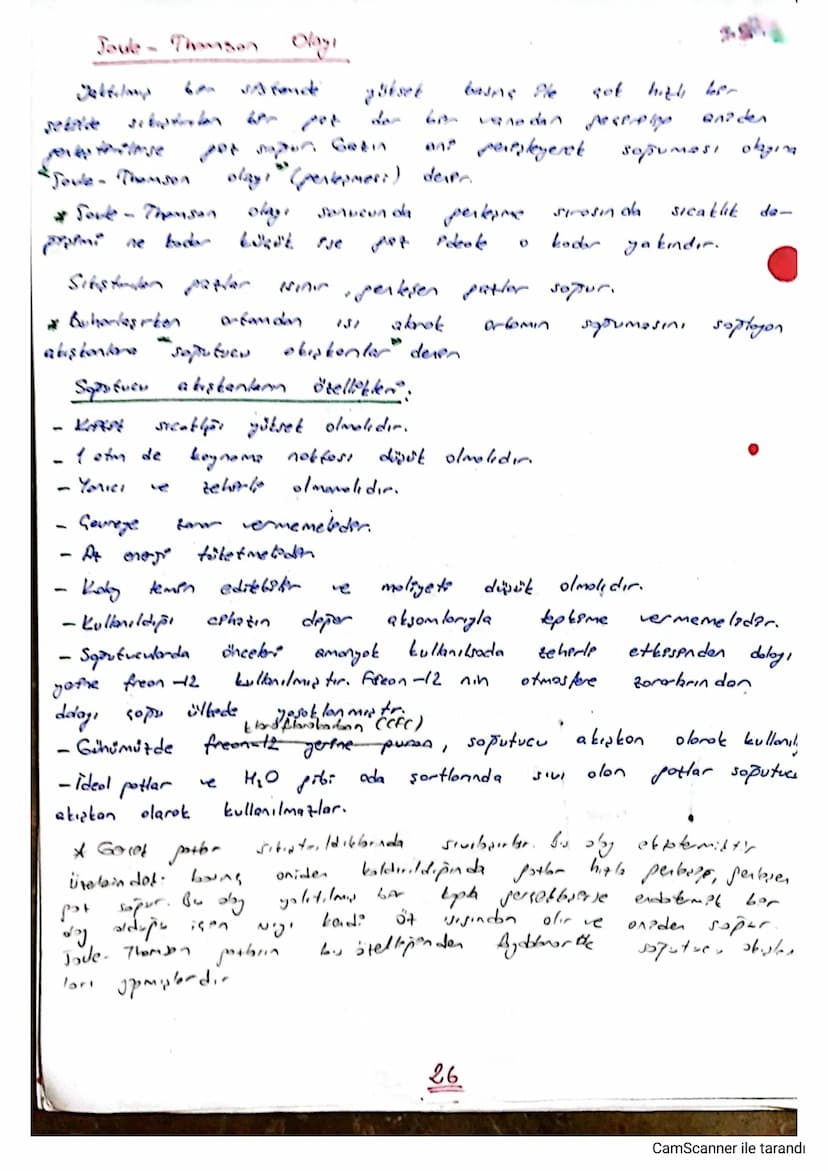 Joule - Thomson Olayı
Yalıtılmış bir sistemde yüksek basınç ile çok hızlı bir
şekilde sıkıştırılan bir gaz dar bir vanadan geçirilip aniden
genleştirilirse gaz soğur. Gazın ani genleşerek soğuması olayına
"Joule - Thomson olayı" (genleşmesi) denir.
* Joule - Thomson olayı sonucunda genleşme sırasında sıcaklık de-
ğişimi ne kadar küçük ise gaz ideale o kadar yakındır.
Sıkıştırılan gazlar ısınır, genleşen gazlar soğur.
* Buharlaşırken ortamdan ısı alarak ortamın soğumasını sağlayan
akışkanlara "soğutucu akışkanlar" denir
Soğutucu akışkanların özellikleri:
- Kritik sıcaklığı yüksek olmalıdır.
- 1 atm de kaynama noktası düşük olmalıdır.
- Yanıcı ve zehirli olmamalıdır.
- Çevreye zarar vermemelidir.
- Az enerji tüketmelidir
- Kolay temin edilebilir ve maliyeti düşük olmalıdır.
- Kullanıldığı cihazın diğer aksamlarıyla tepkime vermemelidir.
- Soğutucularda önceleri amonyak kullanılsada zehirli etkisinden dolayı
yerine freon -12 kullanılmıştır. Freon -12 nin atmosfere zararlarından
dolayı çoğu ülkede yasaklanmıştır.
kloroflorokarbon (CFC)
- Günümüzde freon-12 yerine puron, soğutucu akışkan olarak kullanılı
- İdeal gazlar ve H₂O gibi oda şartlarında sıvı olan gazlar soğutucu
akışkan olarak kullanılmazlar.
* Gerçek gazlar sıkıştırıldıklarında sıvılaşırlar. Bu olay ekzotermiktir
Üzerindeki basınç aniden kaldırıldığında gazlar hızla genleşir, genleşen
gaz soğur. Bu olay yalıtılmış bir kapta gerçekleşirse endotermik bir
olay olduğu için ısıyı kendi öz ısısından alır ve aniden soğur.
Joule - Thomson gazların bu özelliğinden soğutucu akışkan
ları yapmışlardır
26
CamScanner ile tarandı